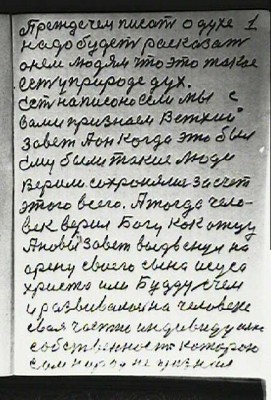 Прежде чем писат о духе 1
надо будет расказат
о нем людям что это такое
ест у природе дух.
ест написоно если мы с
вами признаем Ветхий
завет Аон когда это был
ему были такие люди
верили сохроняли за счет
этого всего. А тогда чело-
век верил Богу как отцу
А новый завет выдвенул на
арену своего сына исуса
христа или Будду с чем
и развивалоя на человеке
своя частно индивидуална
собственност которою